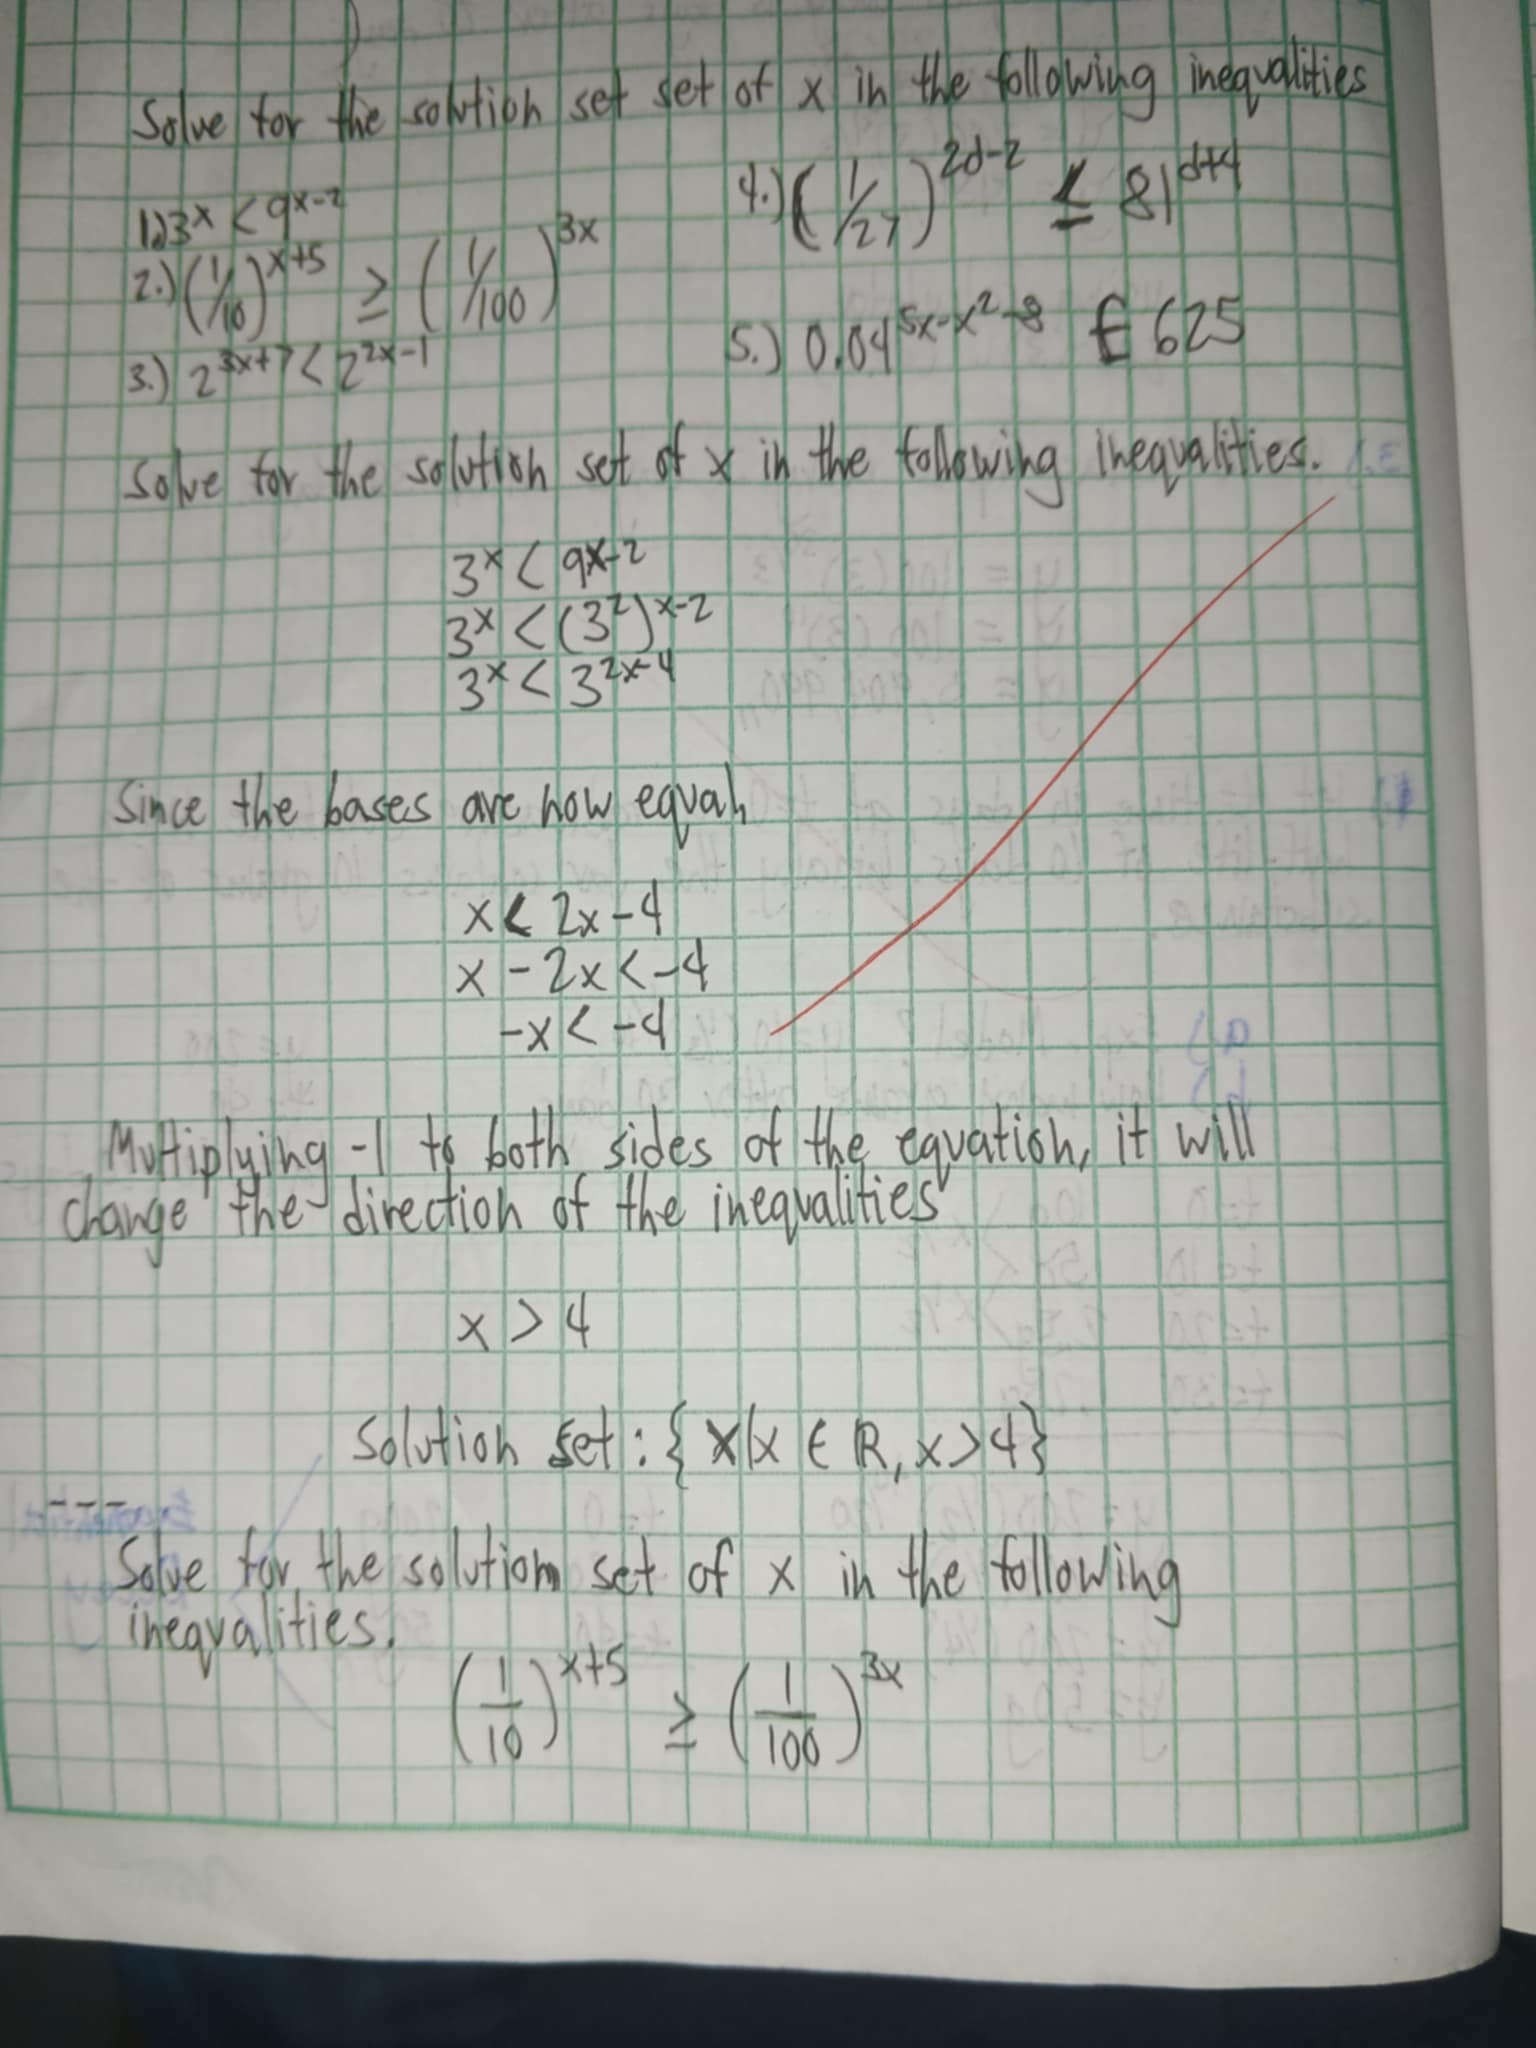 Solve for the solution set set of x in the following inequalities
1.) 3^x < 9^x-2
4.) (1/27)^2d-2 ≤ 81^d+4
2.) (1/10)^x+5 ≥ (1/100)^3x
5.) 0.04^5x-x²-8 £ 625
3.) 2^3x+7 < 2^2x-1
Solve for the solution set of x in the following inequalities.
3^x < 9^x-2
3^x < (3²)^x-2
3^x < 3^2x-4
Since the bases are now equal,
x < 2x-4
x - 2x < -4
-x < -4
Multiplying -1 to both sides of the equation, it will
change the direction of the inequalities
x > 4
Solution set : { x|x ∈ R, x > 4}
---
Solve for the solution set of x in the following
inequalities.
(1/10)^x+5 ≥ (1/100)^3x